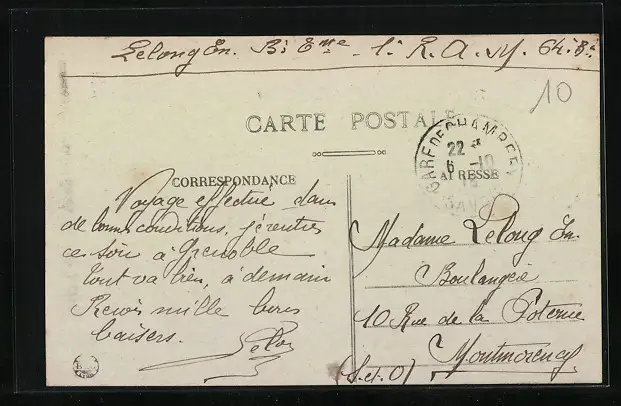 Lelong En. Bie 2eme - 1r R. A. M. 64e Bie
10
CARTE POSTALE
GARE DE CHAMBERY
22
6 -10
CORRESPONDANCE
ADRESSE
Voyage effectué dans
de bonnes conditions, je rentre
ce soir à Grenoble
Tout va bien, à demain
Reçois mille bons
baisers.
Lelong
Madame Lelong En.
Boulanger
10 Rue de la Poterne
Montmorency
(S.et.O)